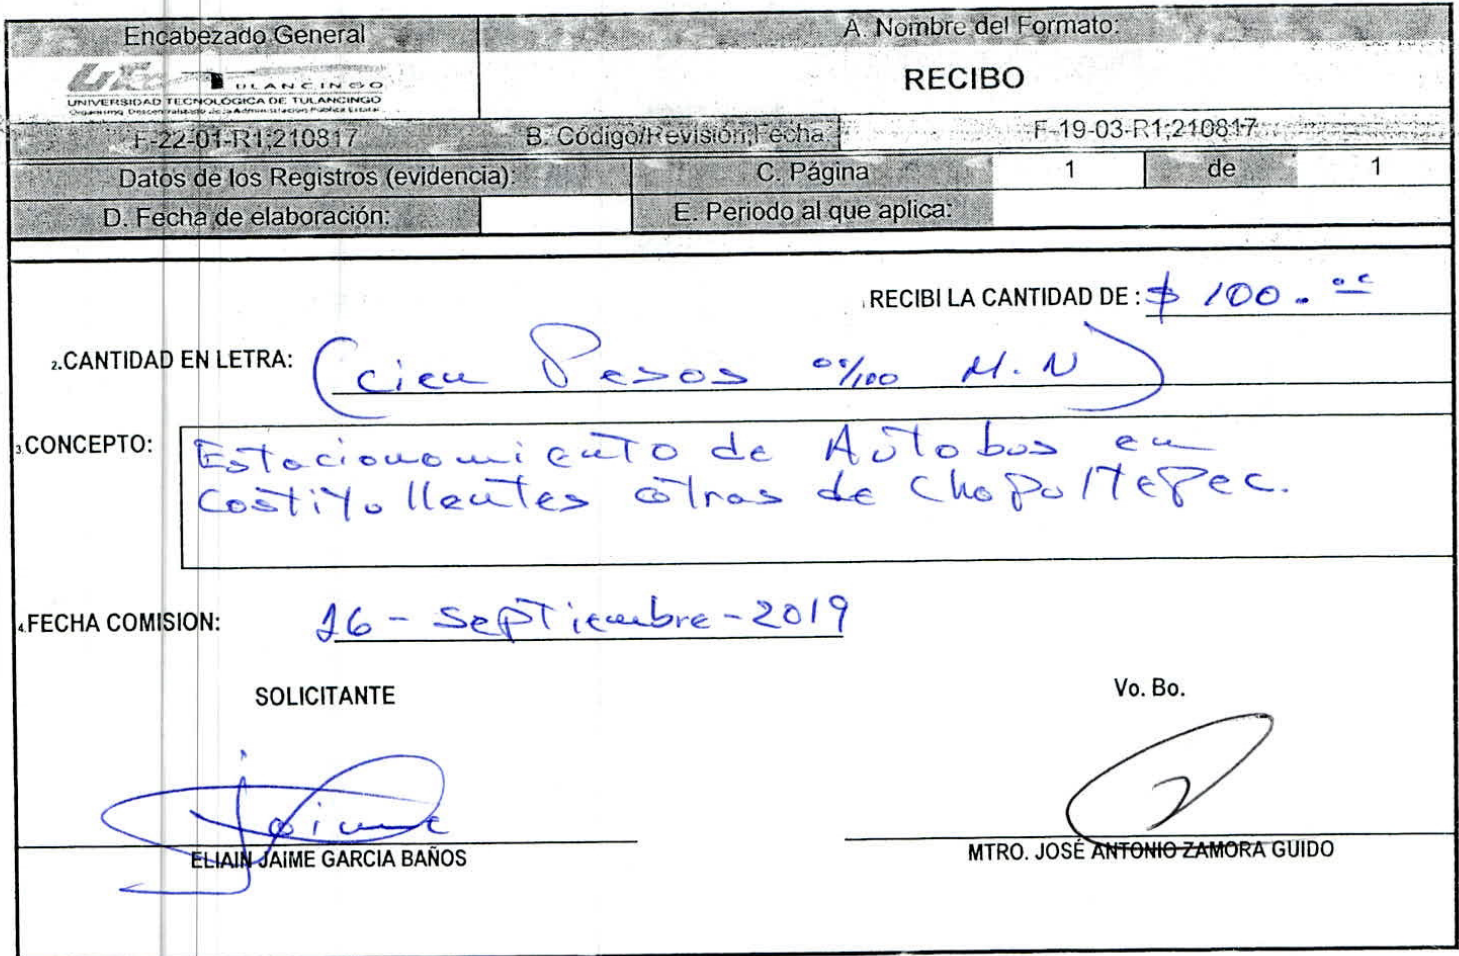 Encabezado General
A. Nombre del Formato:
TULANCINGO
UNIVERSIDAD TECNOLÓGICA DE TULANCINGO
Organismo Descentralizado de la Administración Pública Estatal
RECIBO
F-22-01-R1;210817
B. Código/Revisión;Fecha:
F-19-03-R1;210817
Datos de los Registros (evidencia):
C. Página
1
de
1
D. Fecha de elaboración:
E. Periodo al que aplica:
1.RECIBI LA CANTIDAD DE : $ 100.00
2.CANTIDAD EN LETRA: (cien Pesos 00/100 M.N)
3.CONCEPTO: Estacionamiento de Autobus en
Costity llantes atras de Chapultepec.
4.FECHA COMISION: 16-Septiembre-2019
SOLICITANTE
Vo. Bo.
Jaime
ELIAIN JAIME GARCIA BAÑOS
MTRO. JOSÉ ANTONIO ZAMORA GUIDO